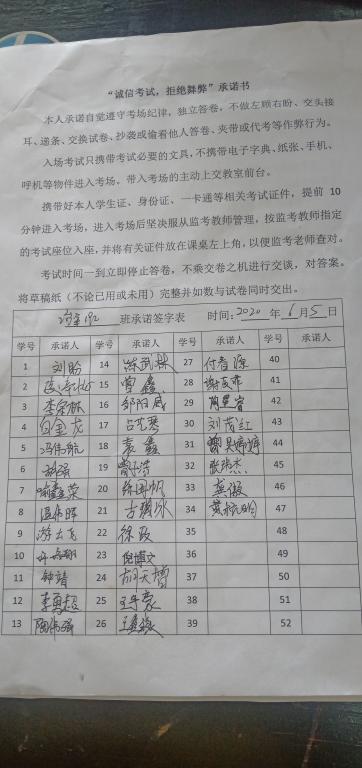 “诚信考试，拒绝舞弊”承诺书
本人承诺自觉遵守考场纪律，独立答卷，不做左顾右盼、交头接
耳、递条、交换试卷、抄袭或偷看他人答卷、夹带或代考等作弊行为。
入场考试只携带考试必要的文具，不携带电子字典、纸张、手机、
呼机等物件进入考场，带入考场的主动上交教室前台。
携带好本人学生证、身份证、一卡通等相关考试证件，提前 10
分钟进入考场，进入考场后坚决服从监考教师管理，按监考教师指定
的考试座位入座，并将有关证件放在课桌左上角，以便监考老师查对。
考试时间一到立即停止答卷，不乘交卷之机进行交谈，对答案。
将草稿纸（不论已用或未用）完整并如数与试卷同时交出。
班承诺签字表 时间：2020 年 6 月 5 日
学号 承诺人 学号 承诺人 学号 承诺人 学号 承诺人
1 刘盼 14 陈武林 27 付春源 40
2 15 曾鑫 28 41
3 李宗林 16 邹阳威 29 42
4 白金龙 17 30 刘茂红 43
5 冯伟航 18 袁鑫 31 44
6 19 32 张张杰 45
7 20 33 46
8 温伟晖 21 34 黄杭明 47
9 游士飞 22 徐政 35 48
10 23 倪博文 36 49
11 钟靖 24 胡天恺 37 50
12 李勇超 25 王子豪 38 51
13 陶伟强 26 39 52